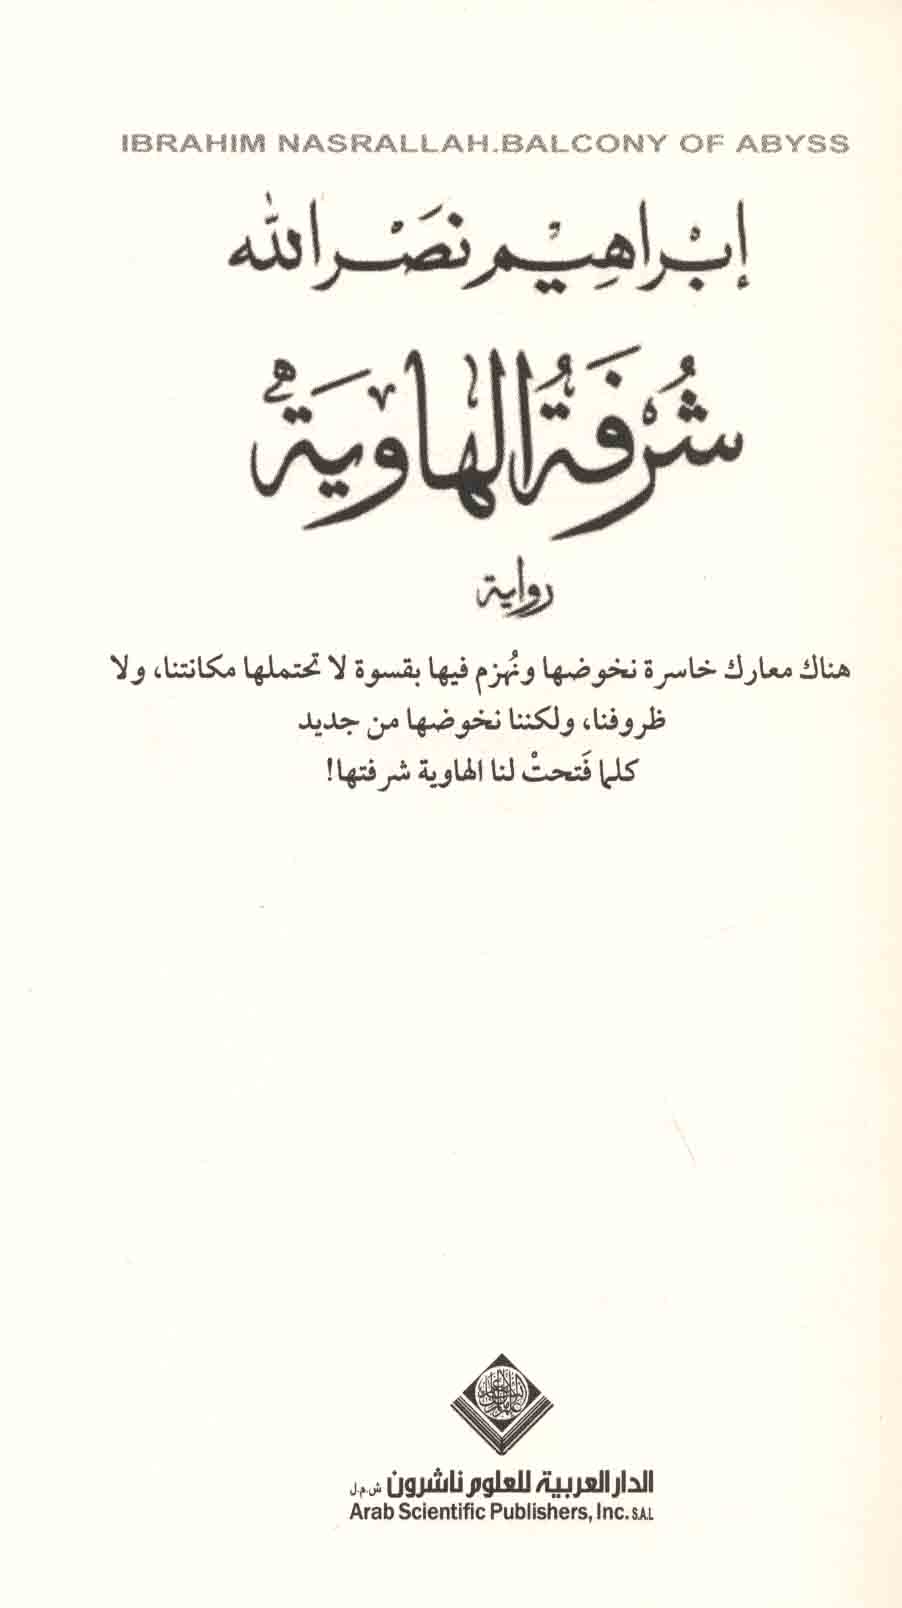 IBRAHIM NASRALLAH.BALCONY OF ABYSS
إبراهيم نصر الله
شُرفَةُ الهاوية
رواية
هناك معارك خاسرة نخوضها ونُهزم فيها بقسوة لا تحتملها مكانتنا، ولا
ظروفنا، ولكننا نخوضها من جديد
كلما فَتحتْ لنا الهاوية شرفتها!
الدار العربية للعلوم ناشرون ش.م.ل
Arab Scientific Publishers, Inc. S.A.L